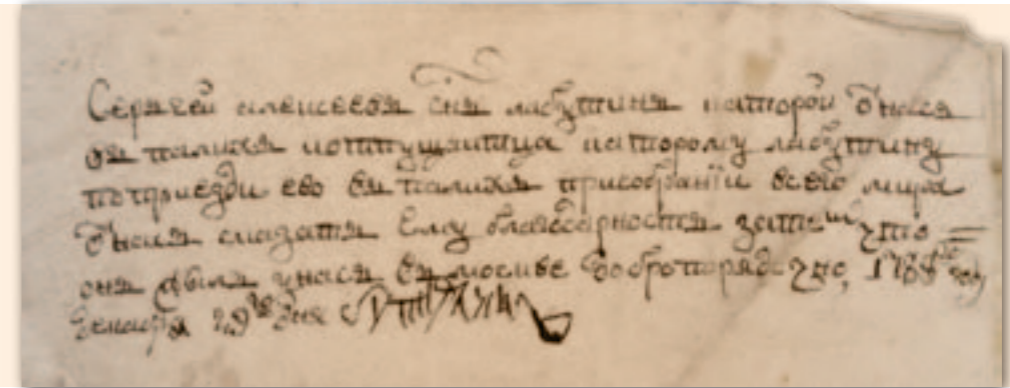 Сергей алексеевъ снъ лабутинъ которой ѿнасъ
въ палихъ иотпущаитца каторому лабутину
поприезди ево въ палихъ присобраніи всего мира
ѿнасъ сказать ему благодарность зате что
онъ былъ унасъ въ москве добропорядочно, 1788 году
генваря 29 дня